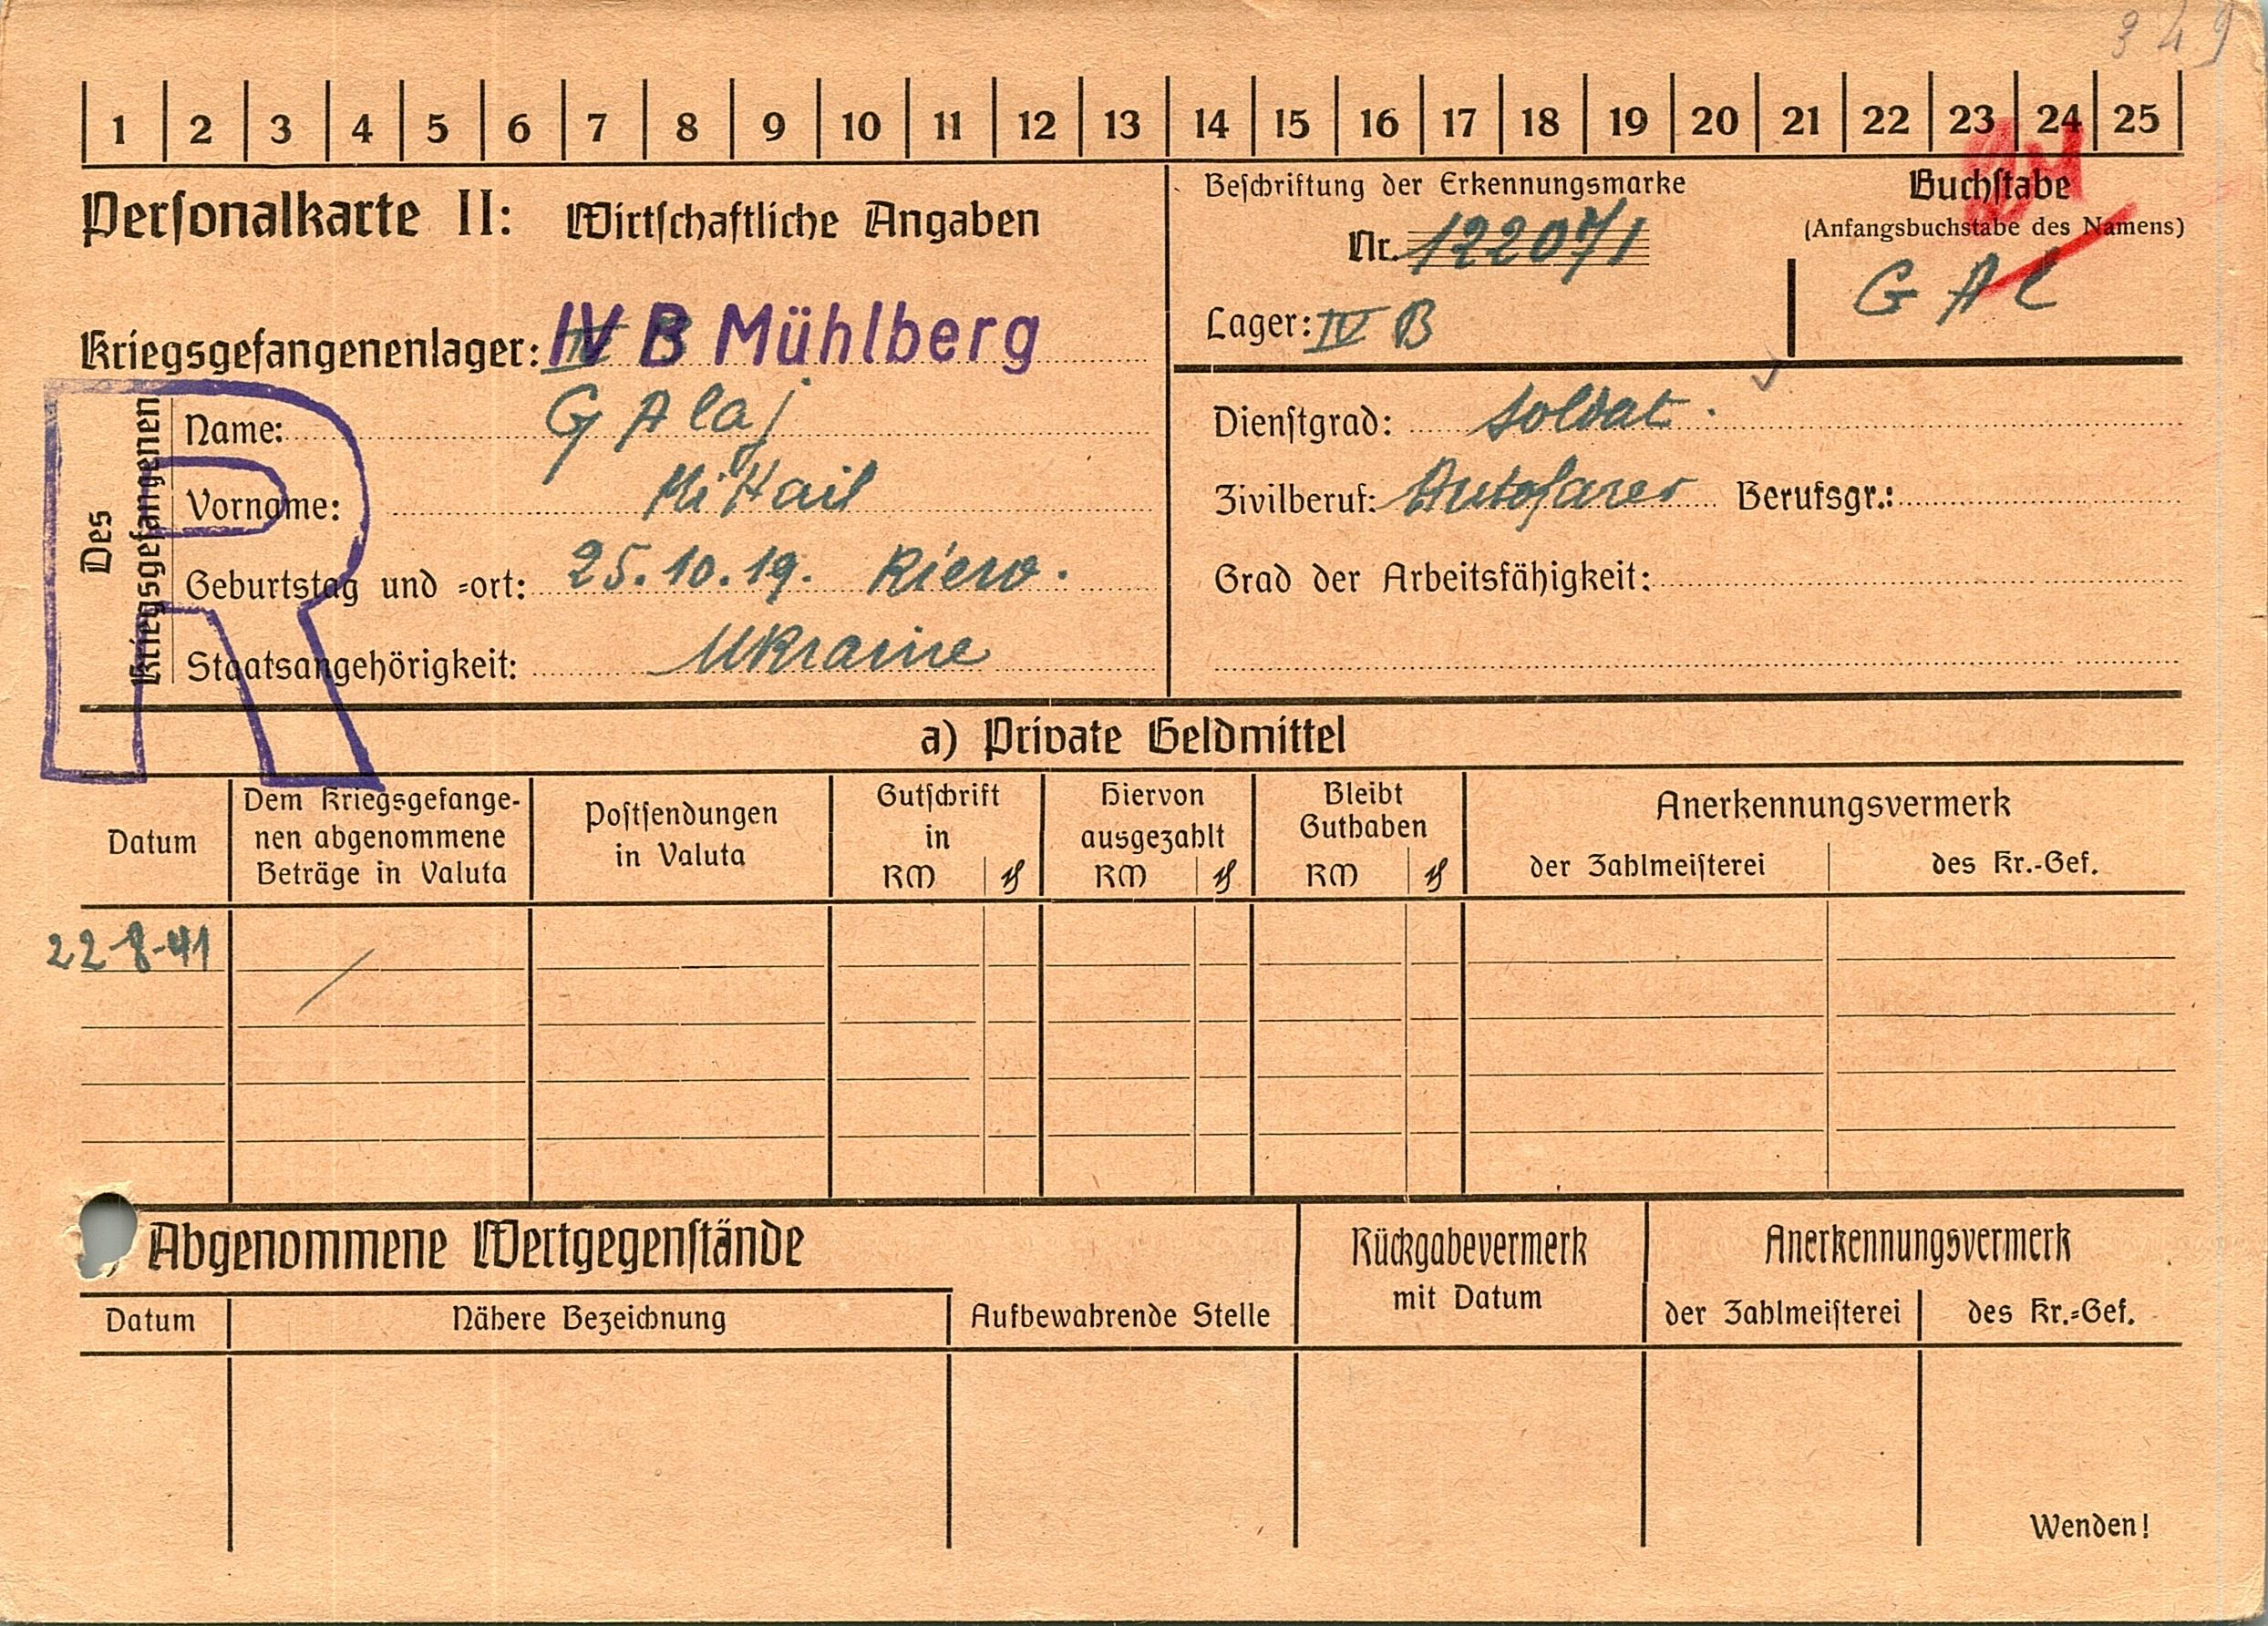 349
1 2 3 4 5 6 7 8 9 10 11 12 13 14 15 16 17 18 19 20 21 22 23 24 25
Personalkarte II: Wirtschaftliche Angaben
Kriegsgefangenenlager: IV B Mühlberg
Beschriftung der Erkennungsmarke
Nr. 122071
Lager: IV B
Buchstabe
(Anfangsbuchstabe des Namens)
G A l
Des Kriegsgefangenen
R
Name: G A laj
Vorname: MiHail
Geburtstag und =ort: 25.10.19. Kiew.
Staatsangehörigkeit: Ukraine
Dienstgrad: Soldat.
Zivilberuf: Autofarer Berufsgr.:
Grad der Arbeitsfähigkeit:
a) Private Geldmittel
Datum
Dem Kriegsgefange-
nen abgenommene
Beträge in Valuta
Postsendungen
in Valuta
Gutschrift
in
RM ₰
Hiervon
ausgezahlt
RM ₰
Bleibt
Guthaben
RM ₰
Anerkennungsvermerk
der Zahlmeisterei des Kr.-Gef.
22-8-41
Abgenommene Wertgegenstände
Datum Nähere Bezeichnung Aufbewahrende Stelle
Rückgabevermerk
mit Datum
Anerkennungsvermerk
der Zahlmeisterei des Kr.=Gef.
Wenden!